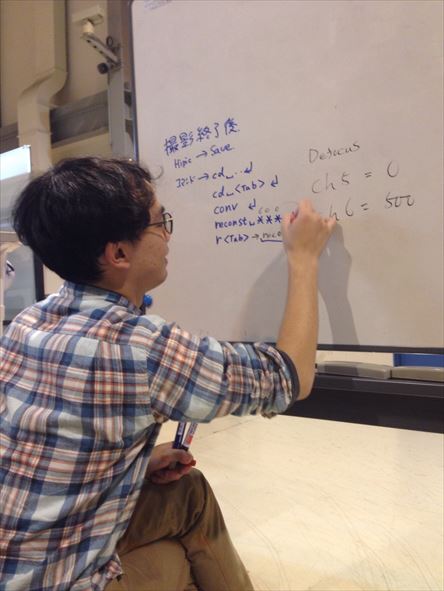 撮影終了後
Hipic → Save
→ cd␣.. ↲
cd␣<Tab> ↲
conv ↲
reconst␣***
r<Tab> → reco
Defocus
ch5 = 0
h6 = 500